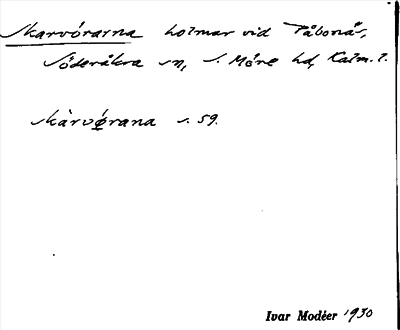 Skarvörarna holmar vid Påbonäs,
Söderåkra sn, S. Möre hd, Kalm. l.
skàrvǿrana s. 59.
Ivar Modéer 1930